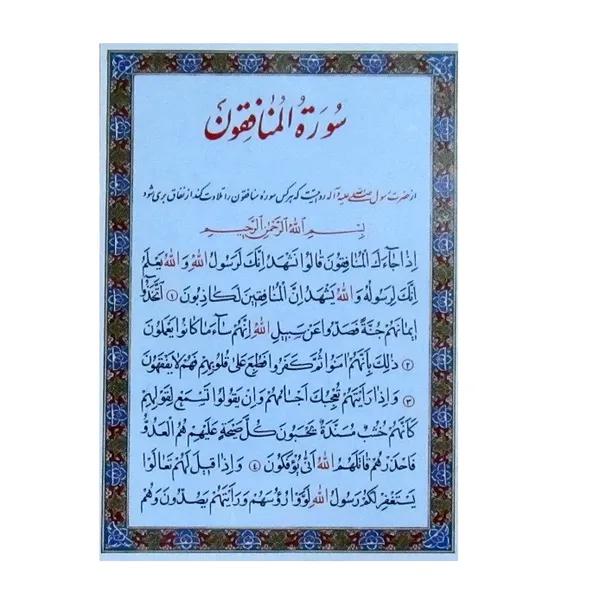 سُورَةُ الْمُنَافِقُون
از حضرت رسول صلی الله علیه و آله روایتست که هر کس سوره منافقون را تلاوت کند از نفاق بری شود
بِسْمِ اللَّهِ الرَّحْمَنِ الرَّحِيمِ
إِذَا جَاءَكَ الْمُنَافِقُونَ قَالُوا نَشْهَدُ إِنَّكَ لَرَسُولُ اللَّهِ وَ اللَّهُ يَعْلَمُ
إِنَّكَ لَرَسُولُهُ وَ اللَّهُ يَشْهَدُ إِنَّ الْمُنَافِقِينَ لَكَاذِبُونَ ١ اتَّخَذُوا
أَيْمَانَهُمْ جُنَّةً فَصَدُّوا عَنْ سَبِيلِ اللَّهِ إِنَّهُمْ سَاءَ مَا كَانُوا يَعْمَلُونَ
٢ ذَلِكَ بِأَنَّهُمْ آمَنُوا ثُمَّ كَفَرُوا فَطُبِعَ عَلَى قُلُوبِهِمْ فَهُمْ لَا يَفْقَهُونَ
٣ وَ إِذَا رَأَيْتَهُمْ تُعْجِبُكَ أَجْسَامُهُمْ وَ إِنْ يَقُولُوا تَسْمَعْ لِقَوْلِهِمْ
كَأَنَّهُمْ خُشُبٌ مُسَنَّدَةٌ يَحْسَبُونَ كُلَّ صَيْحَةٍ عَلَيْهِمْ هُمُ الْعَدُوُّ
فَاحْذَرْهُمْ قَاتَلَهُمُ اللَّهُ أَنَّى يُؤْفَكُونَ ٤ وَ إِذَا قِيلَ لَهُمْ تَعَالَوْا
يَسْتَغْفِرْ لَكُمْ رَسُولُ اللَّهِ لَوَّوْا رُؤُسَهُمْ وَ رَأَيْتَهُمْ يَصُدُّونَ وَ هُمْ